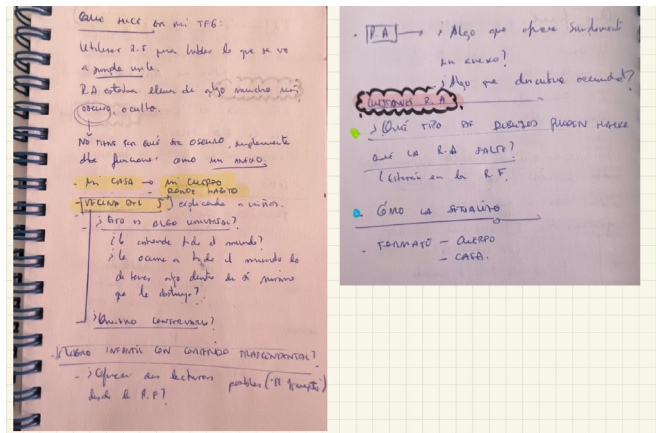 Como hice en mi TFG:
Utilizar R.F para hablar lo que se ve
a simple vista.
R.A estaba llena de algo mucho más
oscuro, oculto.
No tiene por qué ser oscuro, simplemente
debe funcionar como un anexo.
- Mi CASA → Mi CUERPO
DONDE HABITO
- VECINA DEL 5º explicado a niños.
- ¿Esto es ALGO UNIVERSAL?
¿lo entiende todo el mundo?
¿le ocurre a todo el mundo lo
de tener algo dentro de sí mismo
que le destruye?
¿Quiero CONTARLO?
¿LIBRO INFANTIL CON CONTENIDO TRASCENDENTAL?
- ¿Ofrecer dos lecturas posibles
desde la R.F?
- R.A → ¿Algo que ofrece simplemente
un anexo?
¿Algo que descubra
CUESTIONES R.A
¿QUÉ TIPO DE DIBUJOS PUEDEN HACER
QUE LA R.A SALTE?
(Estarán en la R.F.
CÓMO LA SEÑALIZO
- FORMATO - CUERPO
- CASA.